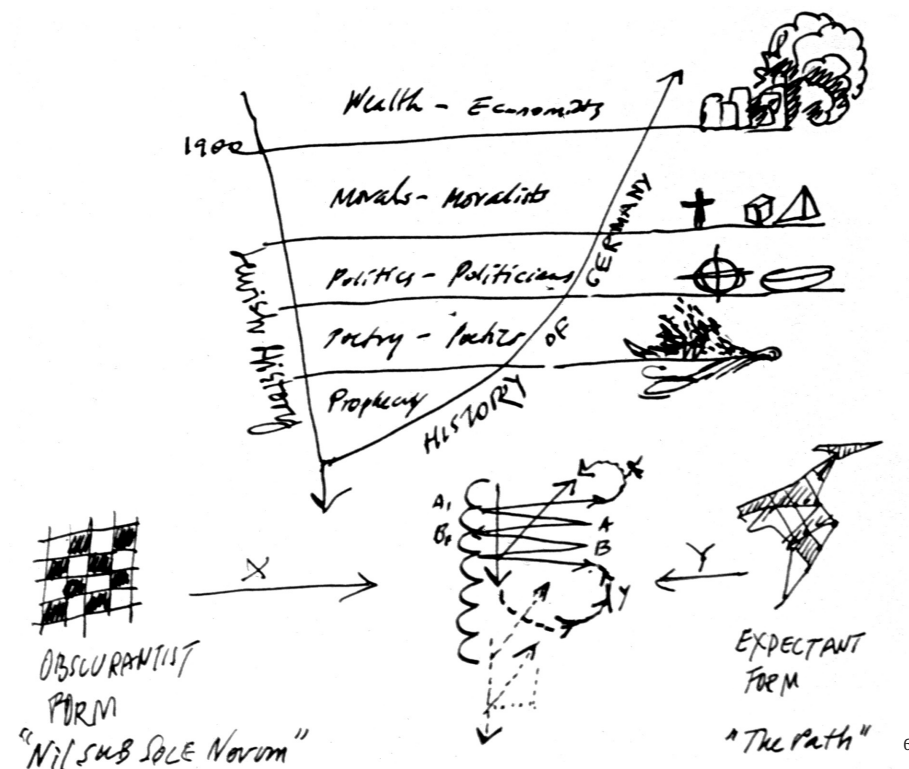 Wealth - Economists
1900
Morals - Moralists
Politics - Politicians
Poetry - Poetics
Prophecy
Jewish History
HISTORY OF GERMANY
X
A1
A
B1
B
X
Y
Y
OBSCURANTIST
FORM
"Nil SUB SOLE Novum"
EXPECTANT
FORM
"The Path"
6